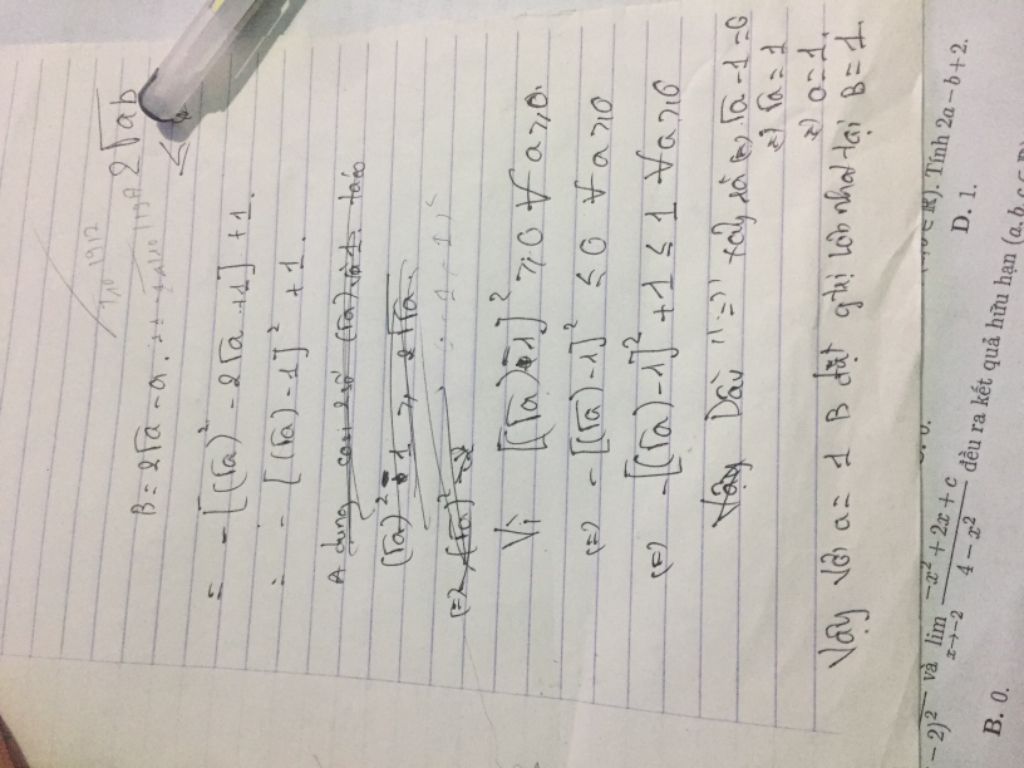 2√ab
B = 2√a - a.
≤
= - [(√a)² - 2√a + 1] + 1.
= - [(√a) - 1]² + 1.
A dụng cosi 2 số (√a)² và 1 ta có
(√a)² + 1 ≥ 2√a
Vì [(√a) - 1]² ≥ 0 ∀ a ≥ 0.
(=) - [(√a) - 1]² ≤ 0 ∀ a ≥ 0
(=) - [(√a) - 1]² + 1 ≤ 1 ∀ a ≥ 0
Vậy Dấu "=" xảy ra (=) √a - 1 = 0
=) √a = 1
=) a = 1.
Vậy Với a = 1 B đạt giá trị lớn nhất tại B = 1
- 2)² và lim x→-2 (-x² + 2x + c)/(4 - x²) đều ra kết quả hữu hạn (a, b, c ∈ R)
∈ ℝ). Tính 2a - b + 2.
B. 0.
D. 1.